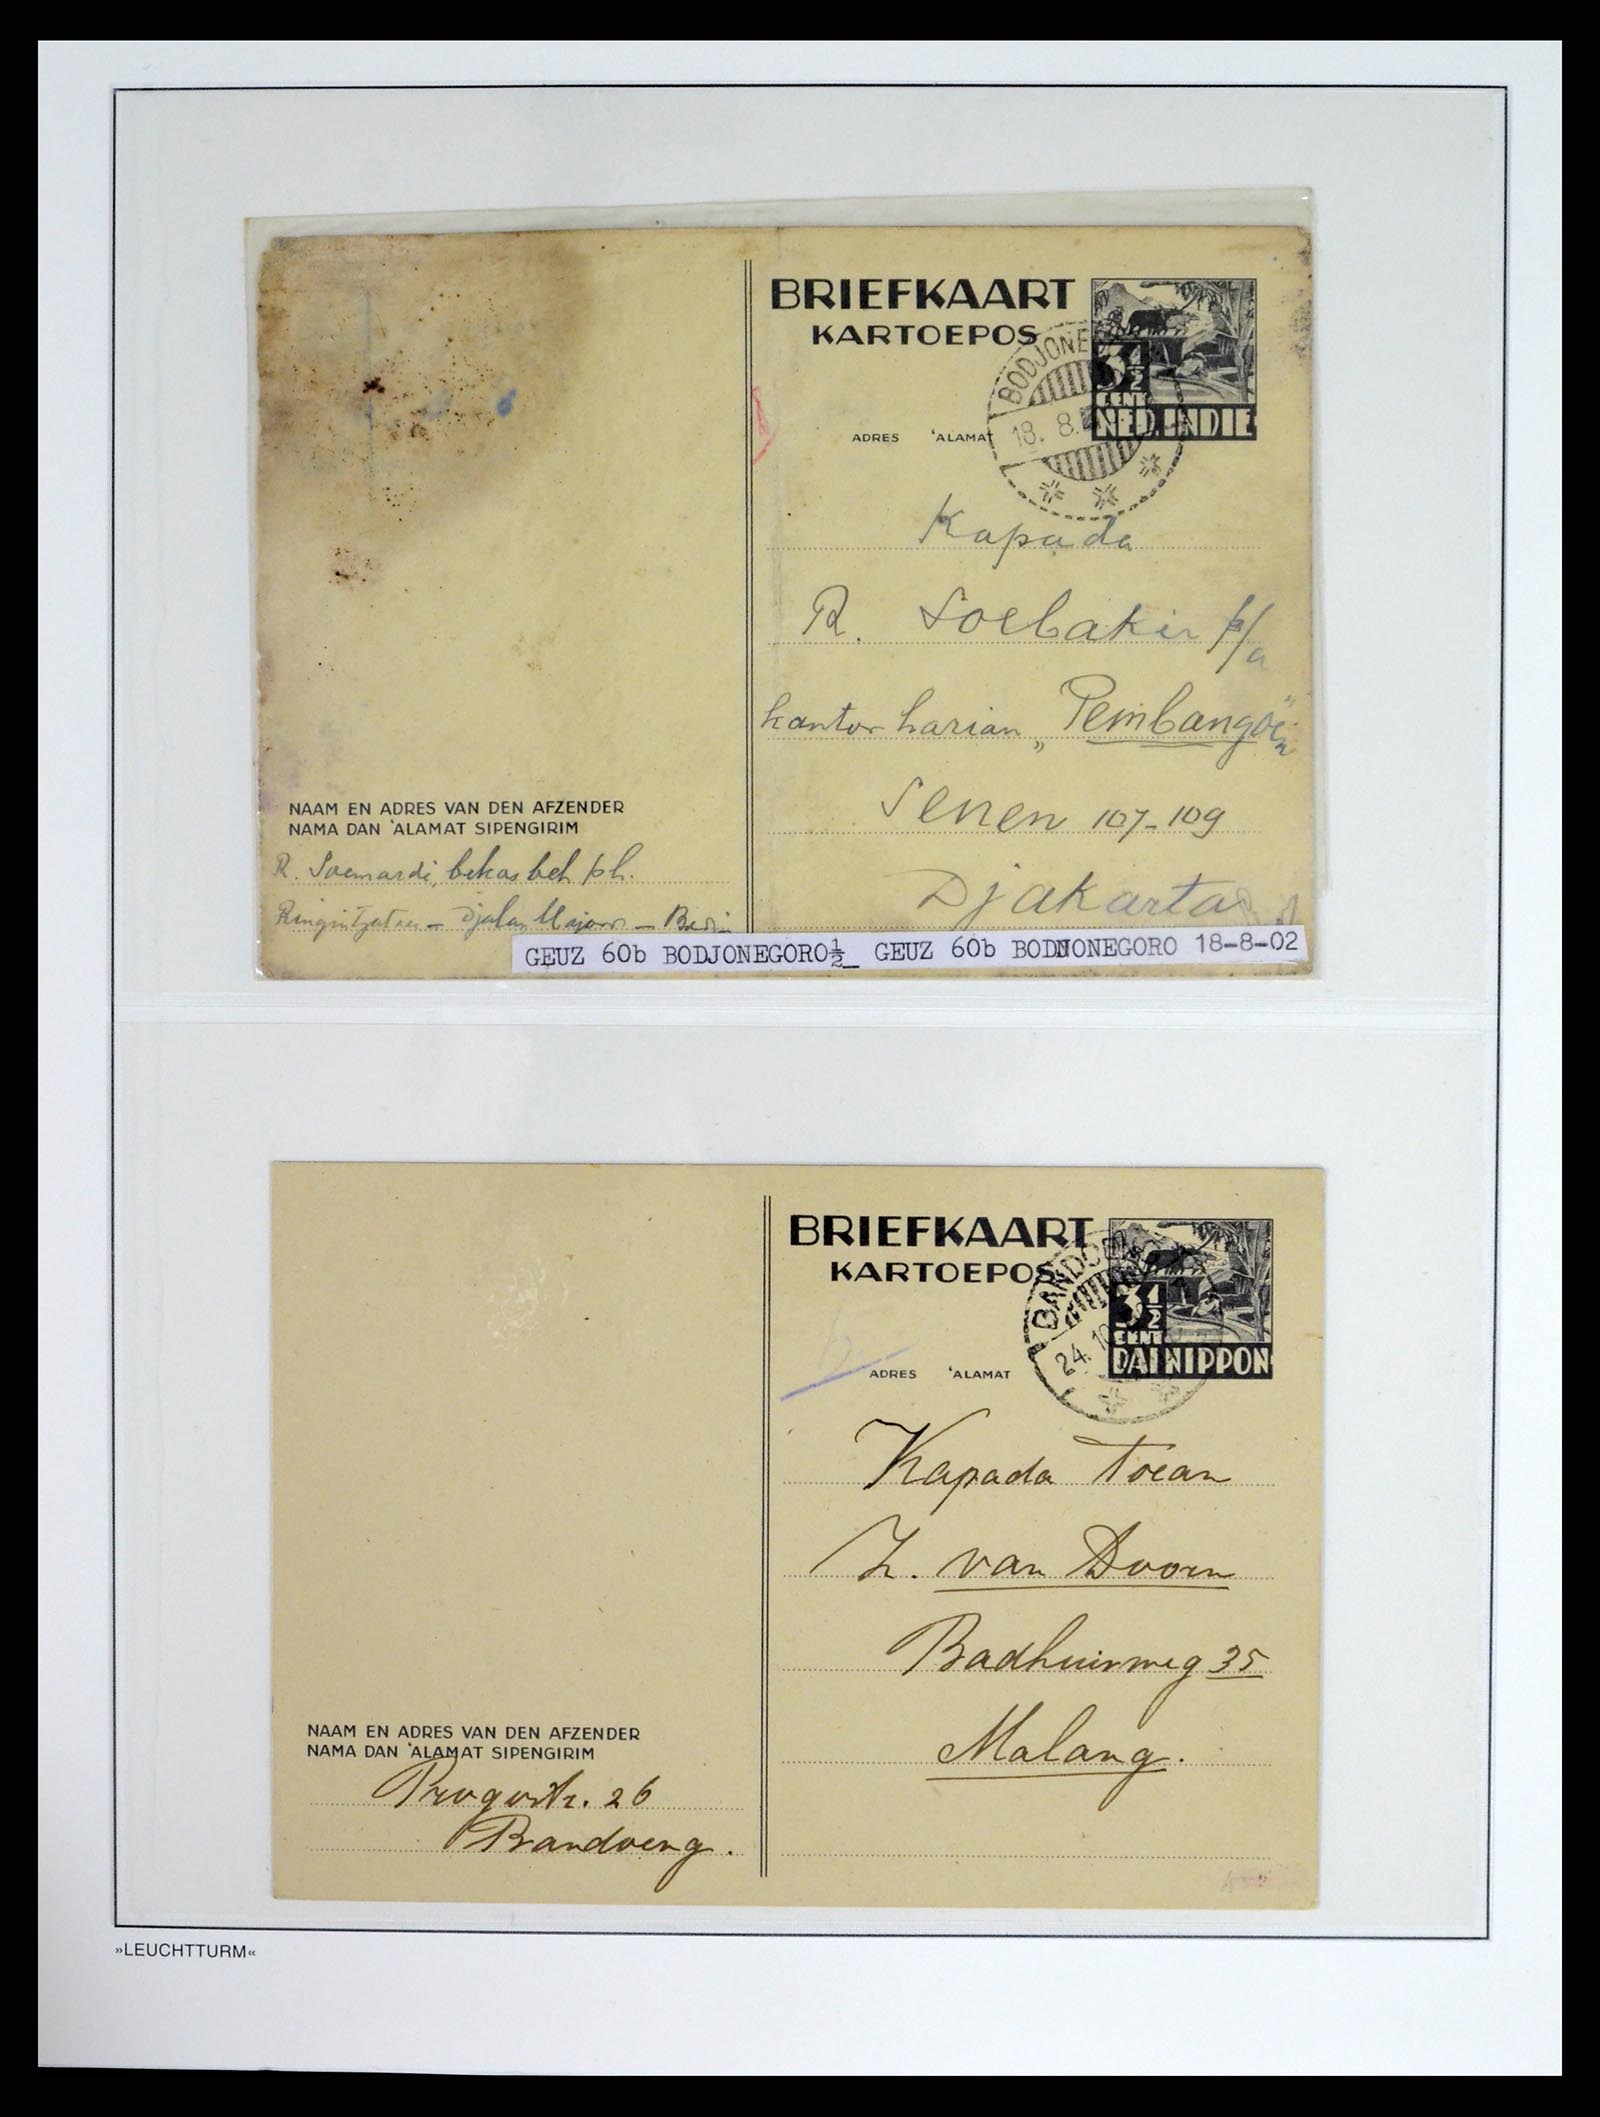 BRIEFKAART
KARTOEPOS
BODJONE
18. 8.
3½
CENT
NED. INDIE
ADRES 'ALAMAT
Kapada
R. Soebakir p/a
kantor harian „Pembangoen"
Senen 107-109
Djakarta
NAAM EN ADRES VAN DEN AFZENDER
NAMA DAN 'ALAMAT SIPENGIRIM
R. Soemardi, bekas beh ph.
GEUZ 60b BODJONEGORO½_ GEUZ 60b BODNONEGORO 18-8-02
BRIEFKAART
KARTOEPOS
BANDOE
24. 10
3½
CENT
DAI NIPPON
ADRES 'ALAMAT
Kapada Toean
Z. van Doorn
Badhuisweg 35
Malang.
NAAM EN ADRES VAN DEN AFZENDER
NAMA DAN 'ALAMAT SIPENGIRIM
Progostr. 26
Bandoeng.
»LEUCHTTURM«